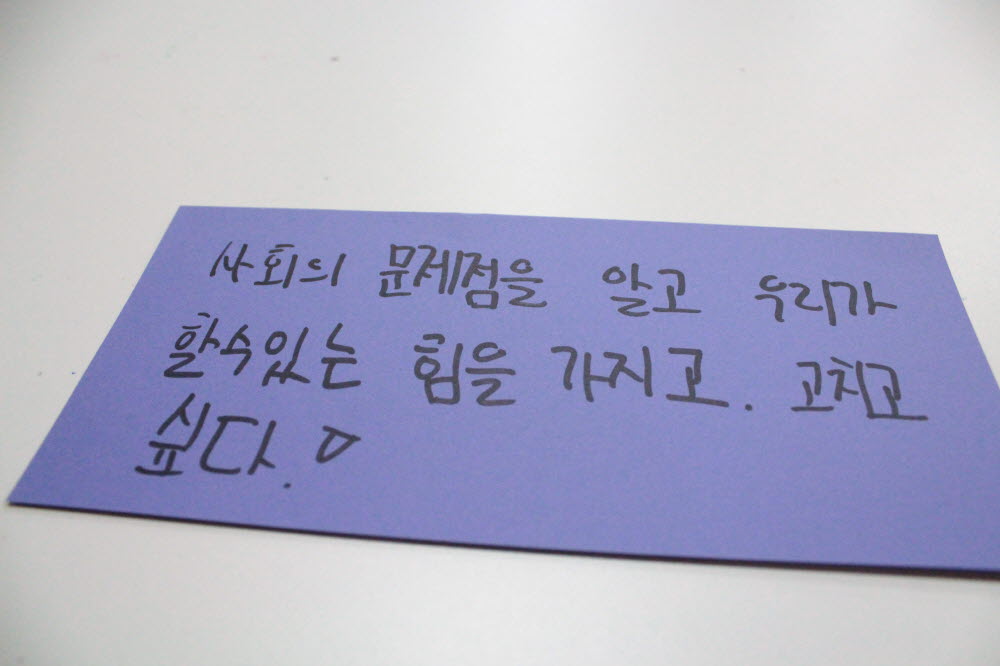 사회의 문제점을 알고 우리가
할수있는 힘을 가지고. 고치고
싶다. ♡